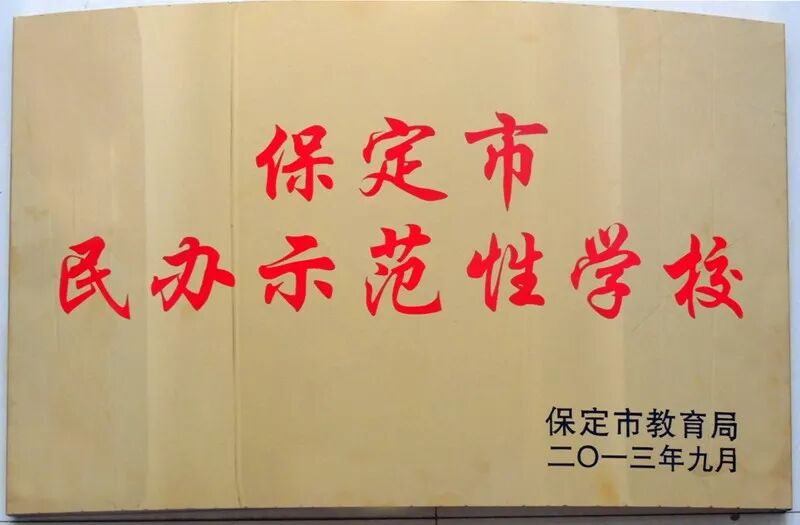 保定市
民办示范性学校
保定市教育局
二〇一三年九月